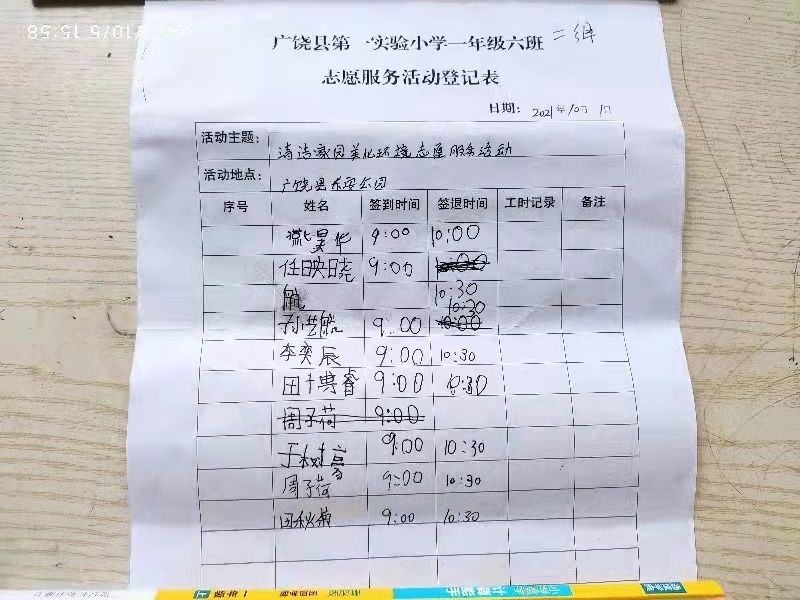 广饶县第一实验小学一年级六班 二组
志愿服务活动登记表
日期: 2021年10月1日
活动主题: 清洁家园美化环境志愿服务活动
活动地点: 广饶县乐安公园
序号 姓名 签到时间 签退时间 工时记录 备注
昊华 9:00 10:00
任映晓 9:00 10:00
航 10:30
10:30
孙艺航 9:00 10:00
李奕辰 9:00 10:30
田 睿 9:00 10:30
周子荷 9:00
于树 9:00 10:30
周子荷 9:00 10:30
田秋菊 9:00 10:30